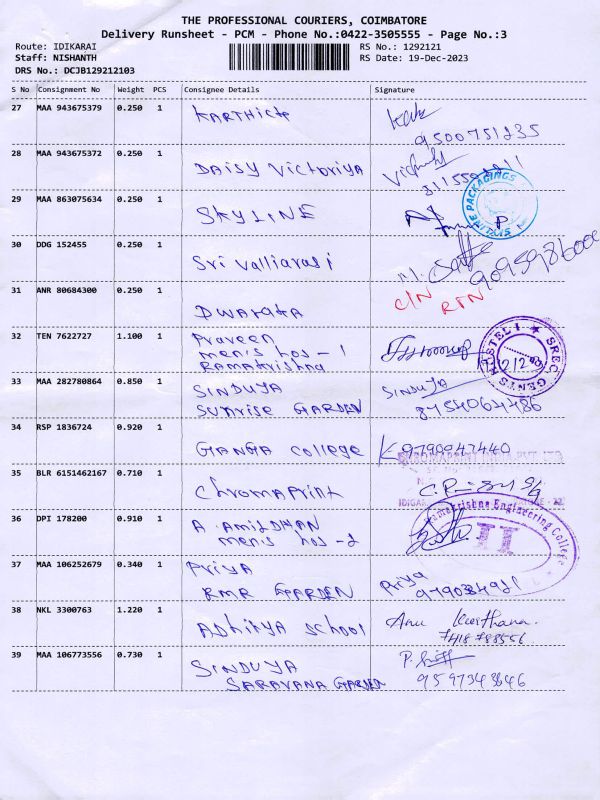 THE PROFESSIONAL COURIERS, COIMBATORE
Delivery Runsheet - PCM - Phone No.:0422-3505555 - Page No.:3
Route: IDIKARAI
RS No.: 1292121
Staff: NISHANTH
RS Date: 19-Dec-2023
DRS No.: DCJB129212103
S No Consignment No Weight PCS Consignee Details Signature
27 MAA 943675379 0.250 1 KARTHICK
9500751235
28 MAA 943675372 0.250 1 DAISY Victoriya
29 MAA 863075634 0.250 1 SKYLINE
PACKAGINGS
30 DDG 152455 0.250 1 Sri Valliarasi
31 ANR 80684300 0.250 1 DWARAKA
C/N RTN
32 TEN 7622727 1.100 1 Praveen
men's hos - 1
RAMAKRISHNA
SREC GENTS HOSTEL I
33 MAA 282780864 0.850 1 SINDUJA SINDUJA
SUNRISE GARDEN 8754064486
34 RSP 1836724 0.920 1 GANGA College 9790047440
35 BLR 6151462167 0.710 1 Chromaprint
36 DPI 178200 0.910 1 A. AMILDHAN
men's hos - 2
Ramakrishna Engineering College
II
37 MAA 106252679 0.340 1 PRIYA Priya
RMR GARDEN
38 NKL 3300763 1.220 1 Adhitya School Anu Keerthana.
7418788556
39 MAA 106773556 0.730 1 SINDUJA
SARAVANA GARDEN 9597343646